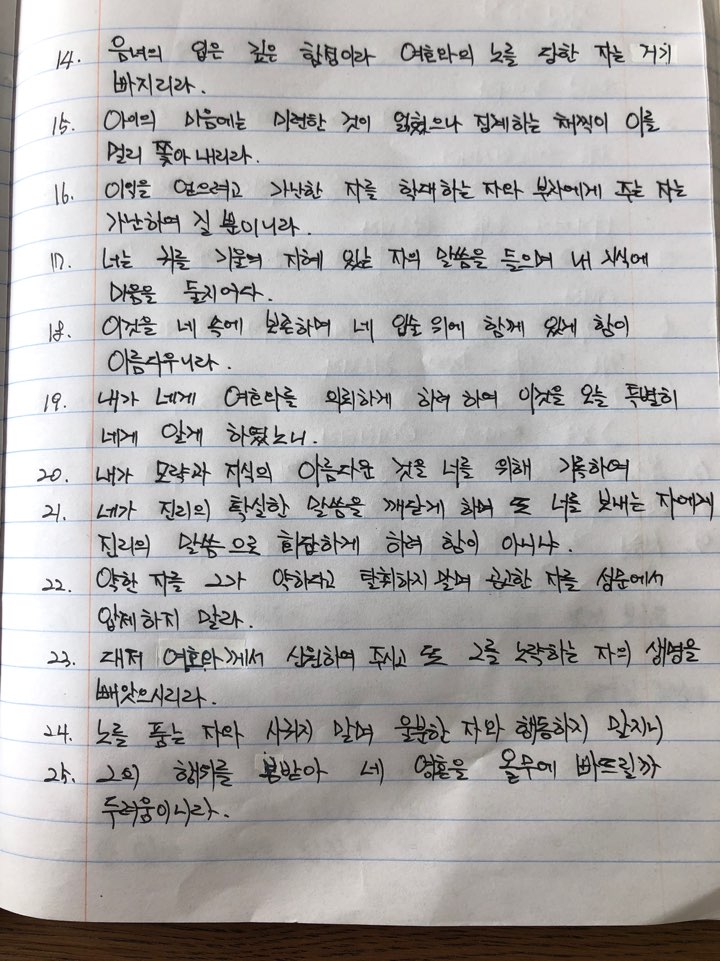 14. 음녀의 입은 깊은 함정이라 여호와의 노를 당한 자는 거기
빠지리라.
15. 아이의 마음에는 미련한 것이 얽혔으나 징계하는 채찍이 이를
멀리 쫓아내리라.
16. 이익을 얻으려고 가난한 자를 학대하는 자와 부자에게 주는 자는
가난하여 질 뿐이니라.
17. 너는 귀를 기울여 지혜 있는 자의 말씀을 들으며 내 지식에
마음을 둘지어다.
18. 이것을 네 속에 보존하며 네 입술 위에 함께 있게 함이
아름다우니라.
19. 내가 네게 여호와를 의뢰하게 하려 하여 이것을 오늘 특별히
네게 알게 하였노니.
20. 내가 모략과 지식의 아름다운 것을 너를 위해 기록하여
21. 네가 진리의 확실한 말씀을 깨닫게 하며 또 너를 보내는 자에게
진리의 말씀으로 회답하게 하려 함이 아니냐.
22. 약한 자를 그가 약하다고 탈취하지 말며 곤고한 자를 성문에서
압제하지 말라.
23. 대저 여호와께서 신원하여 주시고 또 그를 노략하는 자의 생명을
빼앗으시리라.
24. 노를 품는 자와 사귀지 말며 울분한 자와 행동하지 말지니
25. 그의 행위를 본받아 네 영혼을 올무에 빠뜨릴까
두려움이니라.